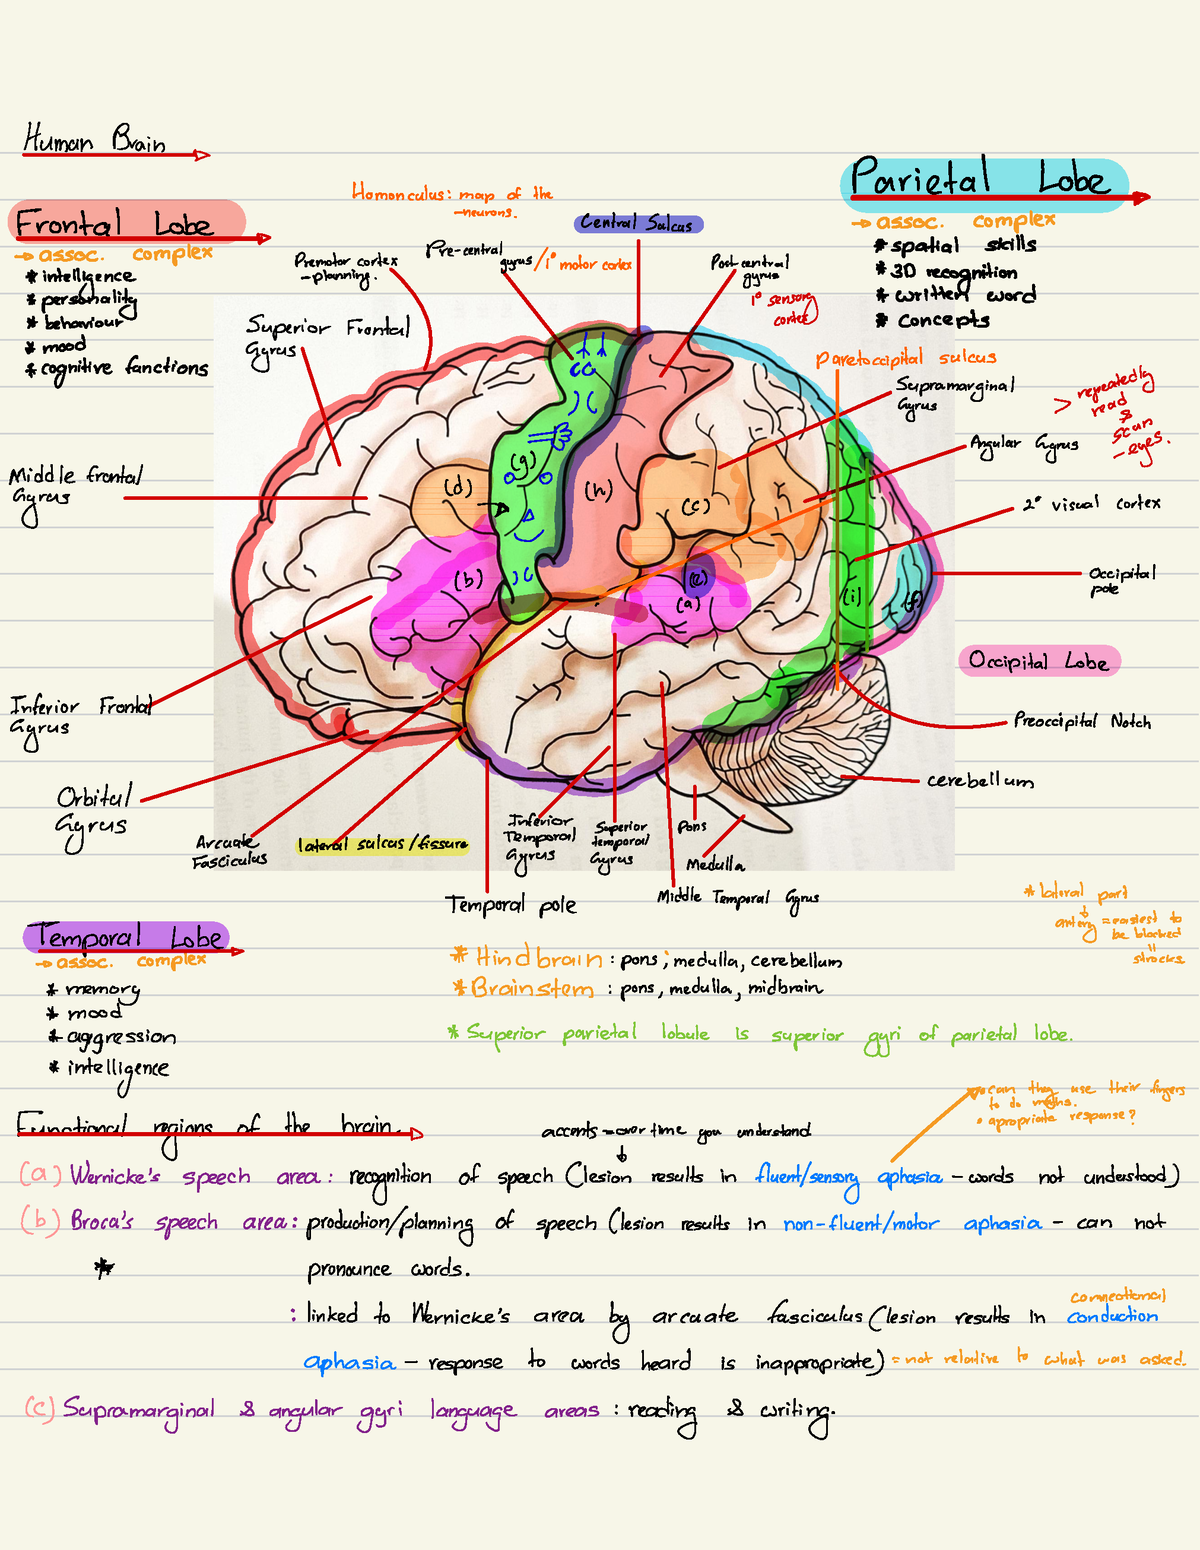 Human Brain
Frontal Lobe
→ assoc. complex
* intelligence
* personality
* behaviour
* mood
* cognitive functions
Homonculus: map of the
-neurons.
Central Sulcus
Premotor cortex
-planning.
Pre-central
gyrus/1° motor cortex
Post central
gyrus
1° sensory
cortex
Parietal Lobe
→ assoc. complex
* spatial skills
* 3D recognition
* written word
* concepts
Superior Frontal
Gyrus
Middle frontal
Gyrus
Inferior Frontal
Gyrus
Orbital
Gyrus
Arcuate
Fasciculus
lateral sulcus/fissure
Temporal pole
Inferior
Temporal
Gyrus
Superior
temporal
Gyrus
Pons
Medulla
Middle Temporal Gyrus
paretoccipital sulcus
Supramarginal
Gyrus
> repeatedly
read
&
scan
-eyes.
Angular Gyrus
2° visual cortex
Occipital
pole
Occipital Lobe
Preoccipital Notch
cerebellum
(d)
(g)
(h)
(c)
(b)
(e)
(a)
(i)
(f)
* lateral part
artery = easiest to
be blocked
=
strocks
Temporal Lobe
→ assoc. complex
* memory
* mood
* aggression
* intelligence
* Hindbrain : pons, medulla, cerebellum
* Brainstem : pons, medulla, midbrain
* Superior parietal lobule is superior gyri of parietal lobe.
• can they use their fingers
to do maths.
• apropriate response?
Functional regions of the brain.
accents = over time you understand
(a) Wernicke's speech area: recognition of speech (lesion results in fluent/sensory aphasia - words not understood)
(b) Broca's speech area: production/planning of speech (lesion results in non-fluent/motor aphasia - can not
* pronounce words.
connectional
: linked to Wernicke's area by arcuate fasciculus (lesion results in conduction
aphasia - response to words heard is inappropriate) = not relative to what was asked.
(c) Supramarginal & angular gyri language areas : reading & writing.